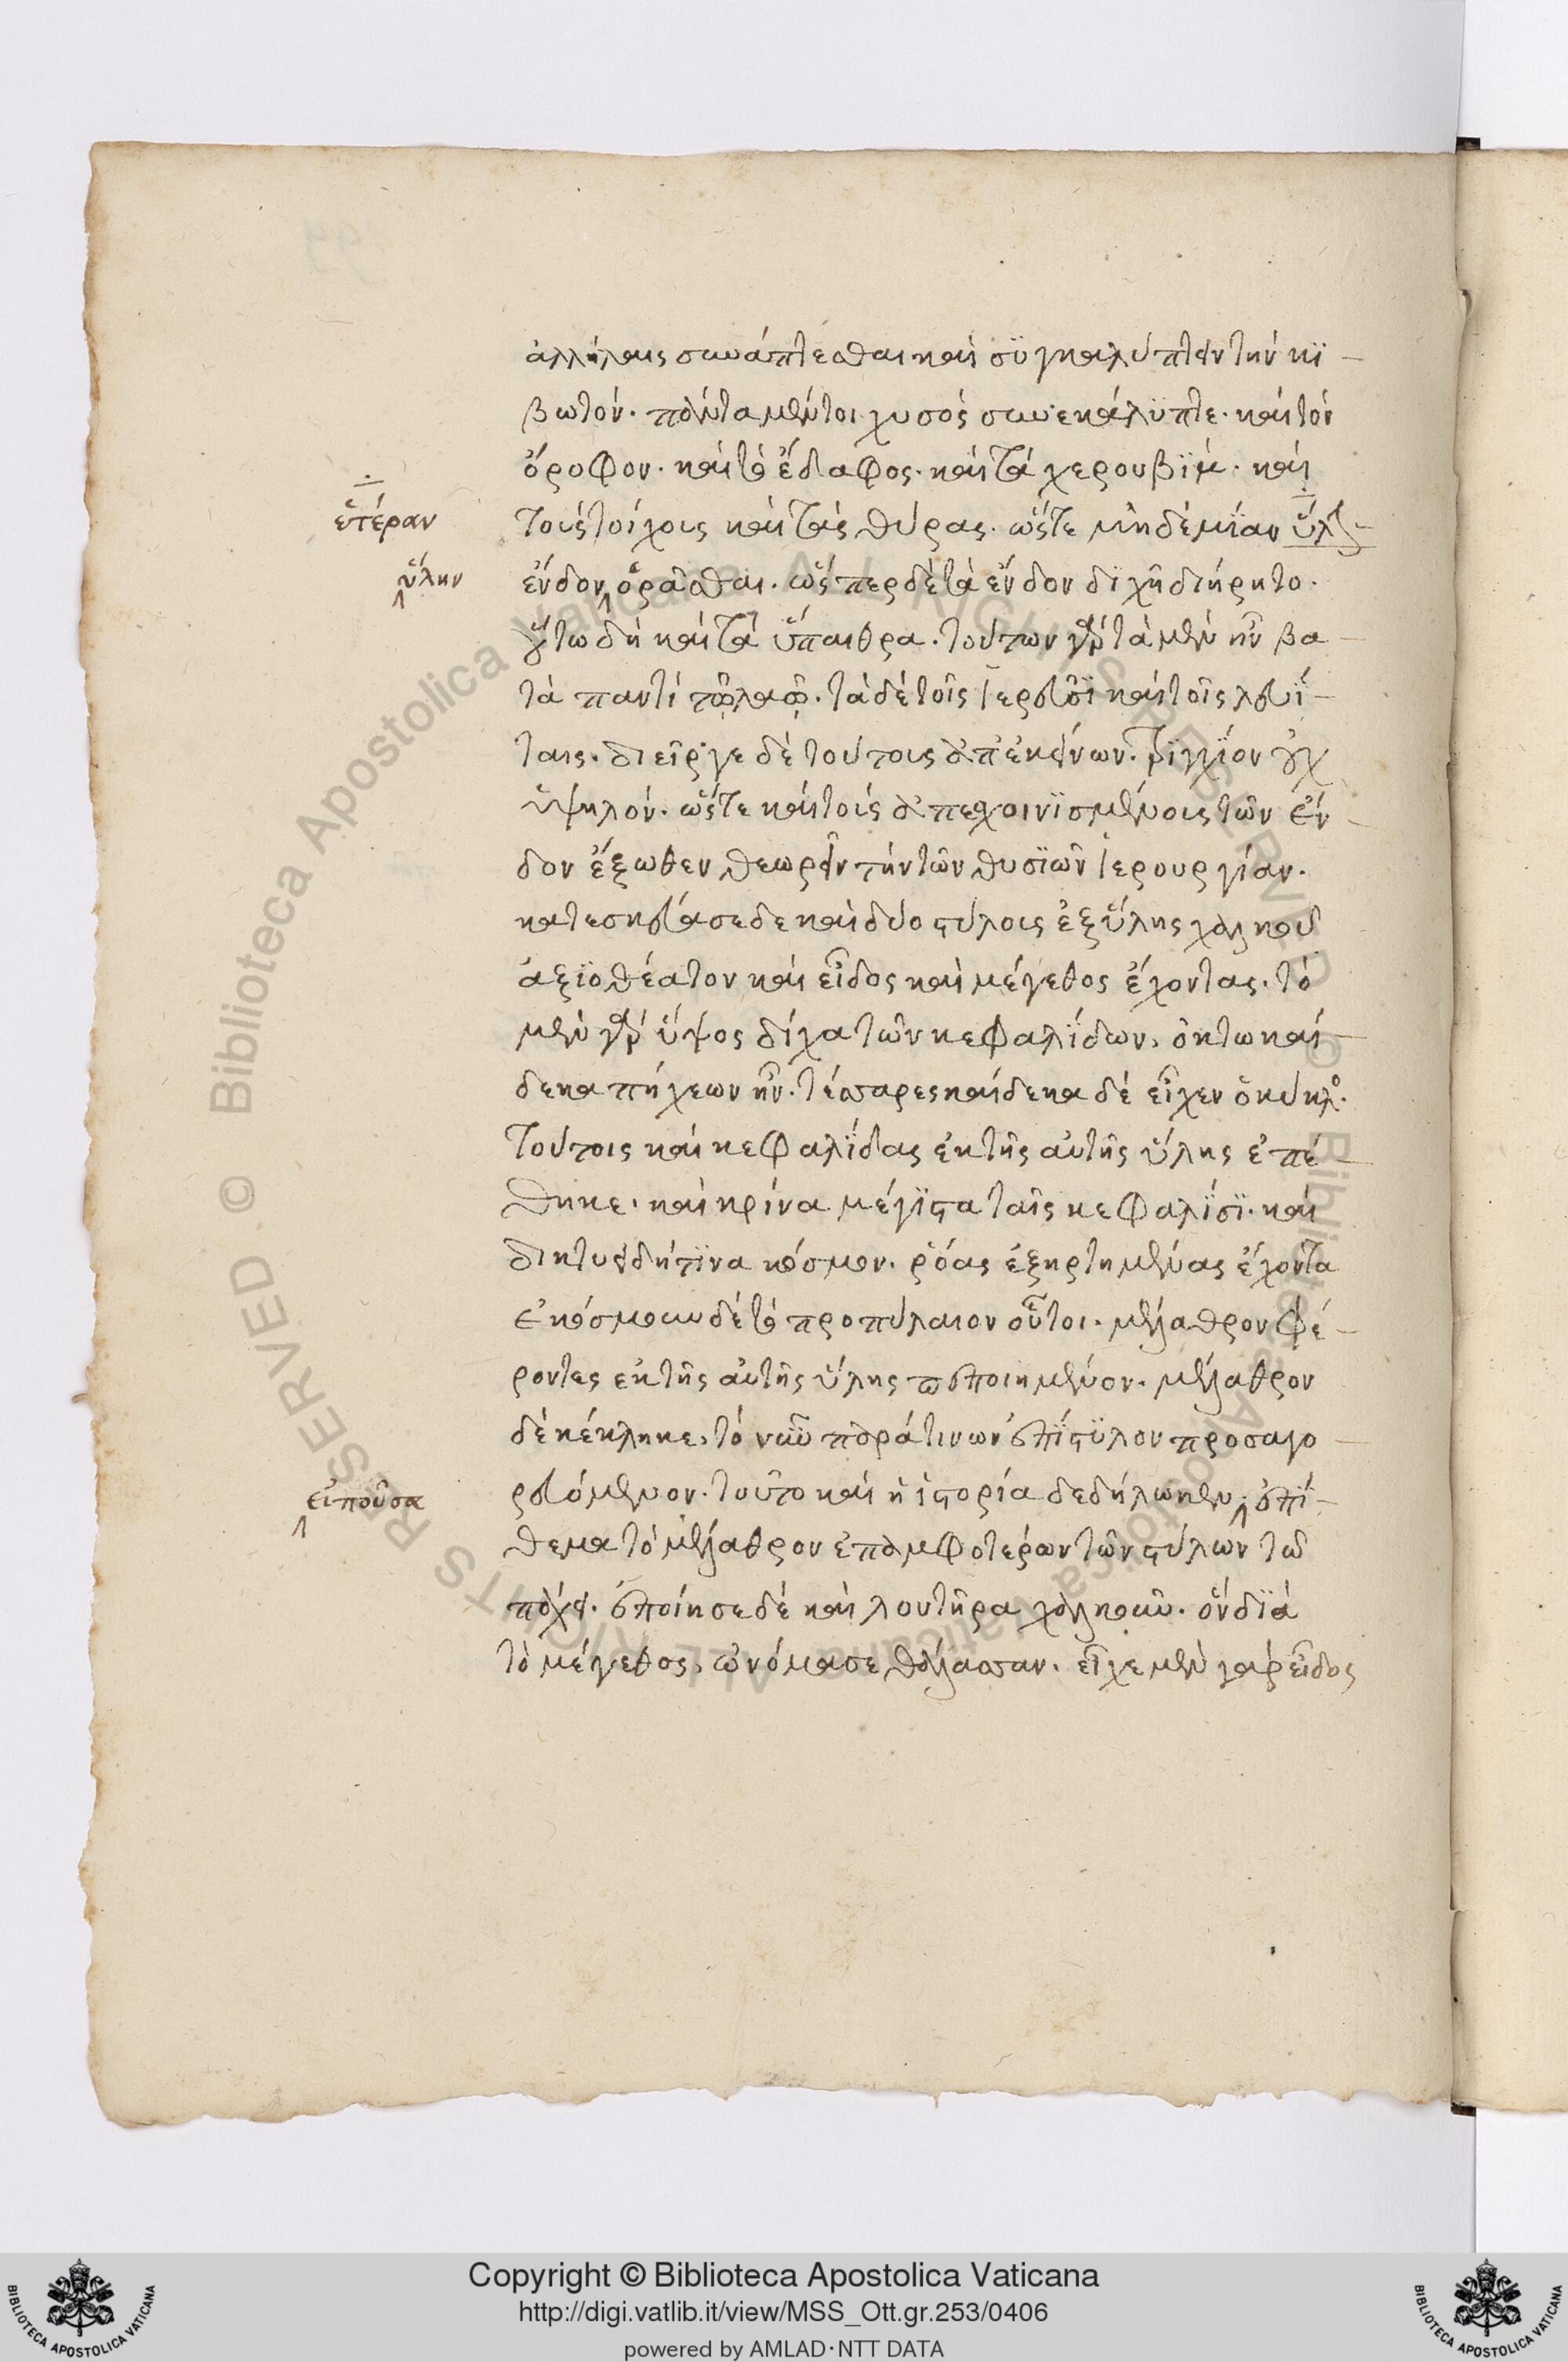 ἀλλήλαις συνάπτεσθαι καὶ συγκαλύπτειν τὴν κϊ
βωτόν. πάντα μέντοι χυσὸς συνεκάλυπτε. καὶ τὸν
ὄροφον. καὶ τὸ ἔδαφος. καὶ τὰ χερουβϊμ. καὶ
τοὺς τοίχους καὶ τὰς θύρας. ὥστε μηδὲ μΐαν ὕλην
ἑτέραν
ἔνδον ὁρᾶσθαι. ὥσπερ δὲ τὰ ἔνδον διχῆ διήρητο.
ὕλην
οὕτω δὴ καὶ τὰ ὕπαιθρα. τούτων γὰρ τὰ μὲν ἦν βα
τὰ παντὶ τῷ λαῷ. τὰ δὲ τοῖς ἱερεῦσϊ καὶ τοῖς λευΐ
ταις. διεῖργε δὲ τούτους ἀπ' ἐκείνων. θριγκΐον οὐχ
ὑψηλόν. ὥστε καὶ τοὺς ἀπεσχοινϊσμένους τῶν ἔν
δον ἔξωθεν θεωρεῖν τὴν τῶν θυσϊῶν ἱερουργίαν.
κατεσκεύασε δε καὶ δύο στύλους ἐξ ὕλης χαλκοῦ
ἀξϊοθέατον καὶ εἶδος καὶ μέγεθος ἔχοντας. τὸ
μὲν γὰρ ὕψος δίχα τῶν κεφαλΐδων, ὀκτωκαί
δεκα πήχεων ἦν. τέσσαρες καίδεκα δὲ εἶχεν ὁ κύκλος.
τούτοις καὶ κεφαλΐδας ἐκ τῆς αὐτῆς ὕλης ἐπέ
θηκε. καὶ κρίνα μέγϊστα ταῖς κεφαλΐσϊ. καὶ
δικτυειδῆ τϊνα κόσμον. ῥόας ἐξηρτημένας ἔχοντα
ἐκόσμουν δὲ τὸ προπύλαιον οὗτοι. μέλαθρον φέ
ροντες ἐκ τῆς αὐτῆς ὕλης πεποιημένον. μέλαθρον
δὲ κέκληκε, τὸ νῦν παράτινων ἐπϊστϋλον προσαγο
ρευόμενον. τοῦτο καὶ ἡ ἱστορία δεδήλωκεν, ἐπΐ
εἰποῦσα
θεμα τὸ μέλαθρον ἐπ' ἀμφοτέρων τῶν στύλων τῶ
πάχει. ἐποίησε δὲ καὶ λουτῆρα χαλκοῦν. ὃν δϊὰ
τὸ μέγεθος, ὠνόμασε θάλασσαν. εἶχε μὲν γὰρ εἶδος
Copyright © Biblioteca Apostolica Vaticana
http://digi.vatlib.it/view/MSS_Ott.gr.253/0406
powered by AMLAD·NTT DATA